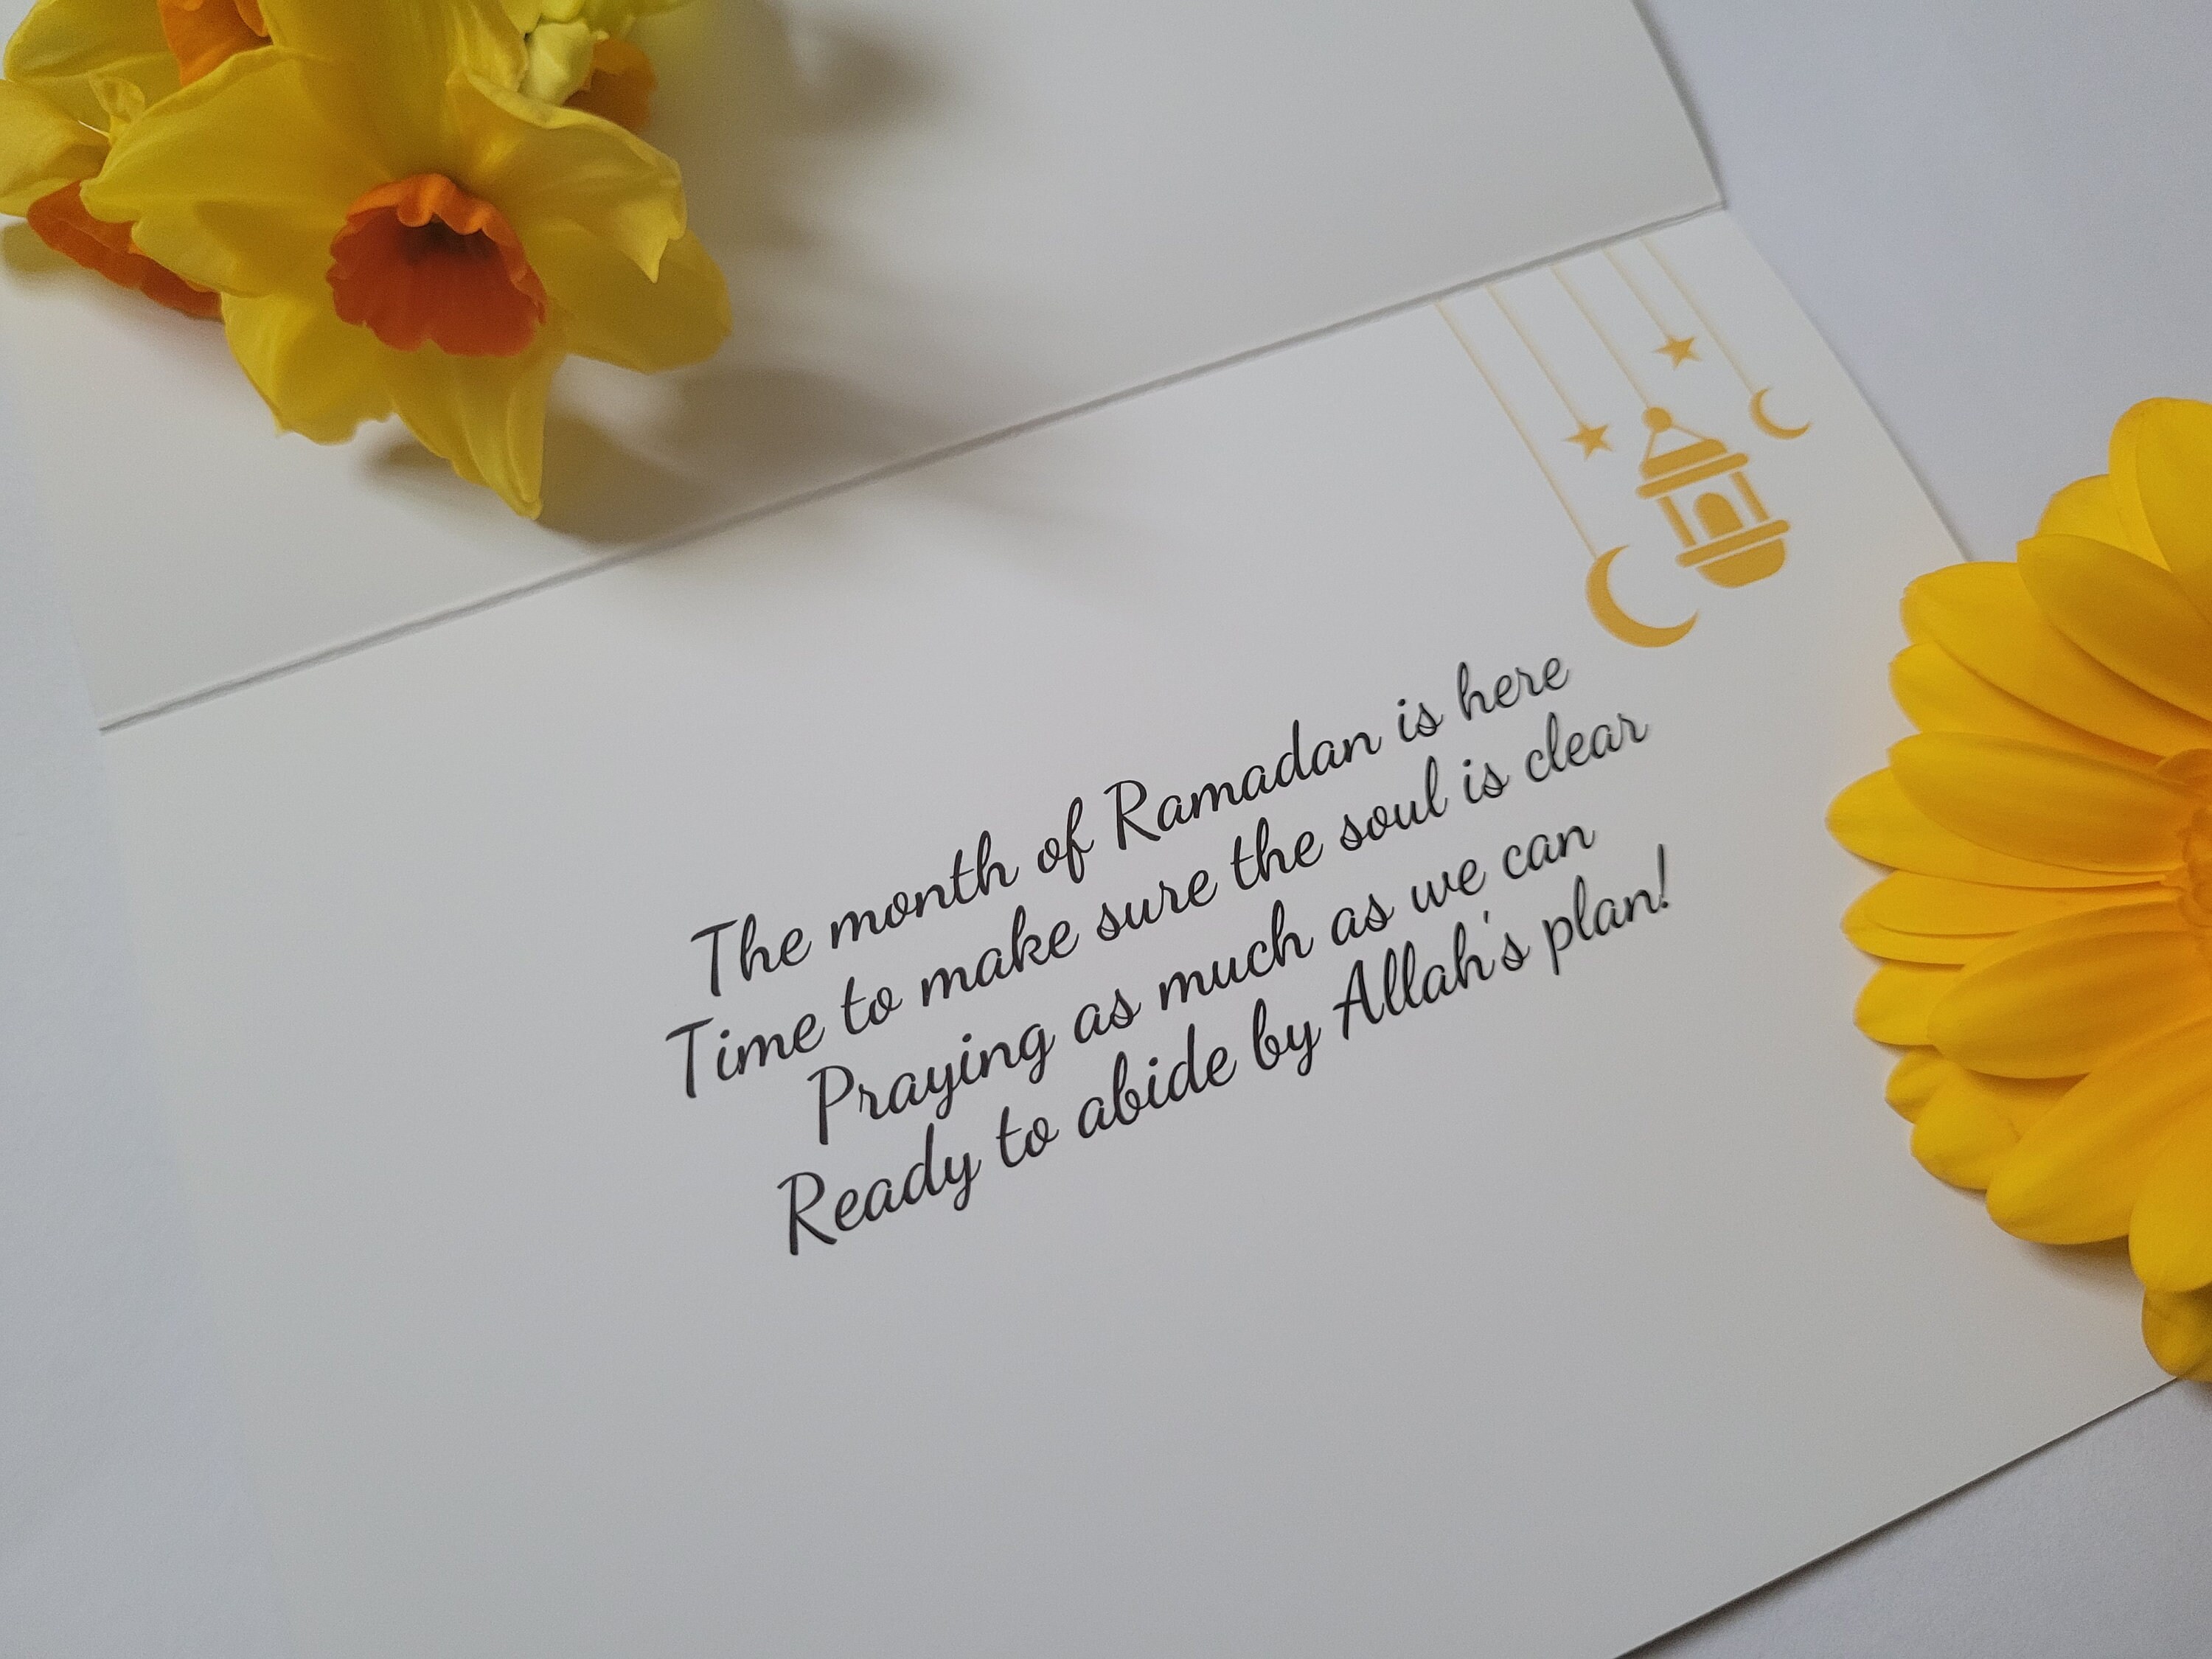 The month of Ramadan is here
Time to make sure the soul is clear
Praying as much as we can
Ready to abide by Allah's plan!